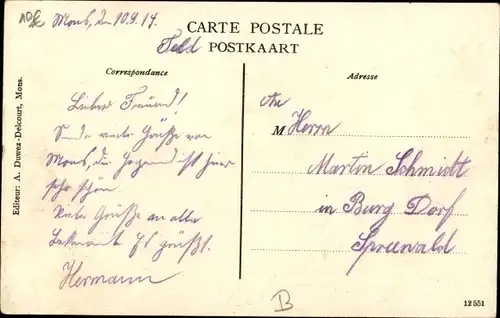 Mons, den 10.9.14.
CARTE POSTALE
Feld POSTKAART
Correspondance
Adresse
Lieber Freund!
Sende viele Grüße von
Mons, die Gegend ist hier
sehr schön.
Viele Grüße an alle
Bekannte Es grüßt.
Hermann
An
M Herrn
Martin Schmidt
in Burg Dorf
Spreewald
Editeur: A. Duwez-Delcourt, Mons.
B
12551